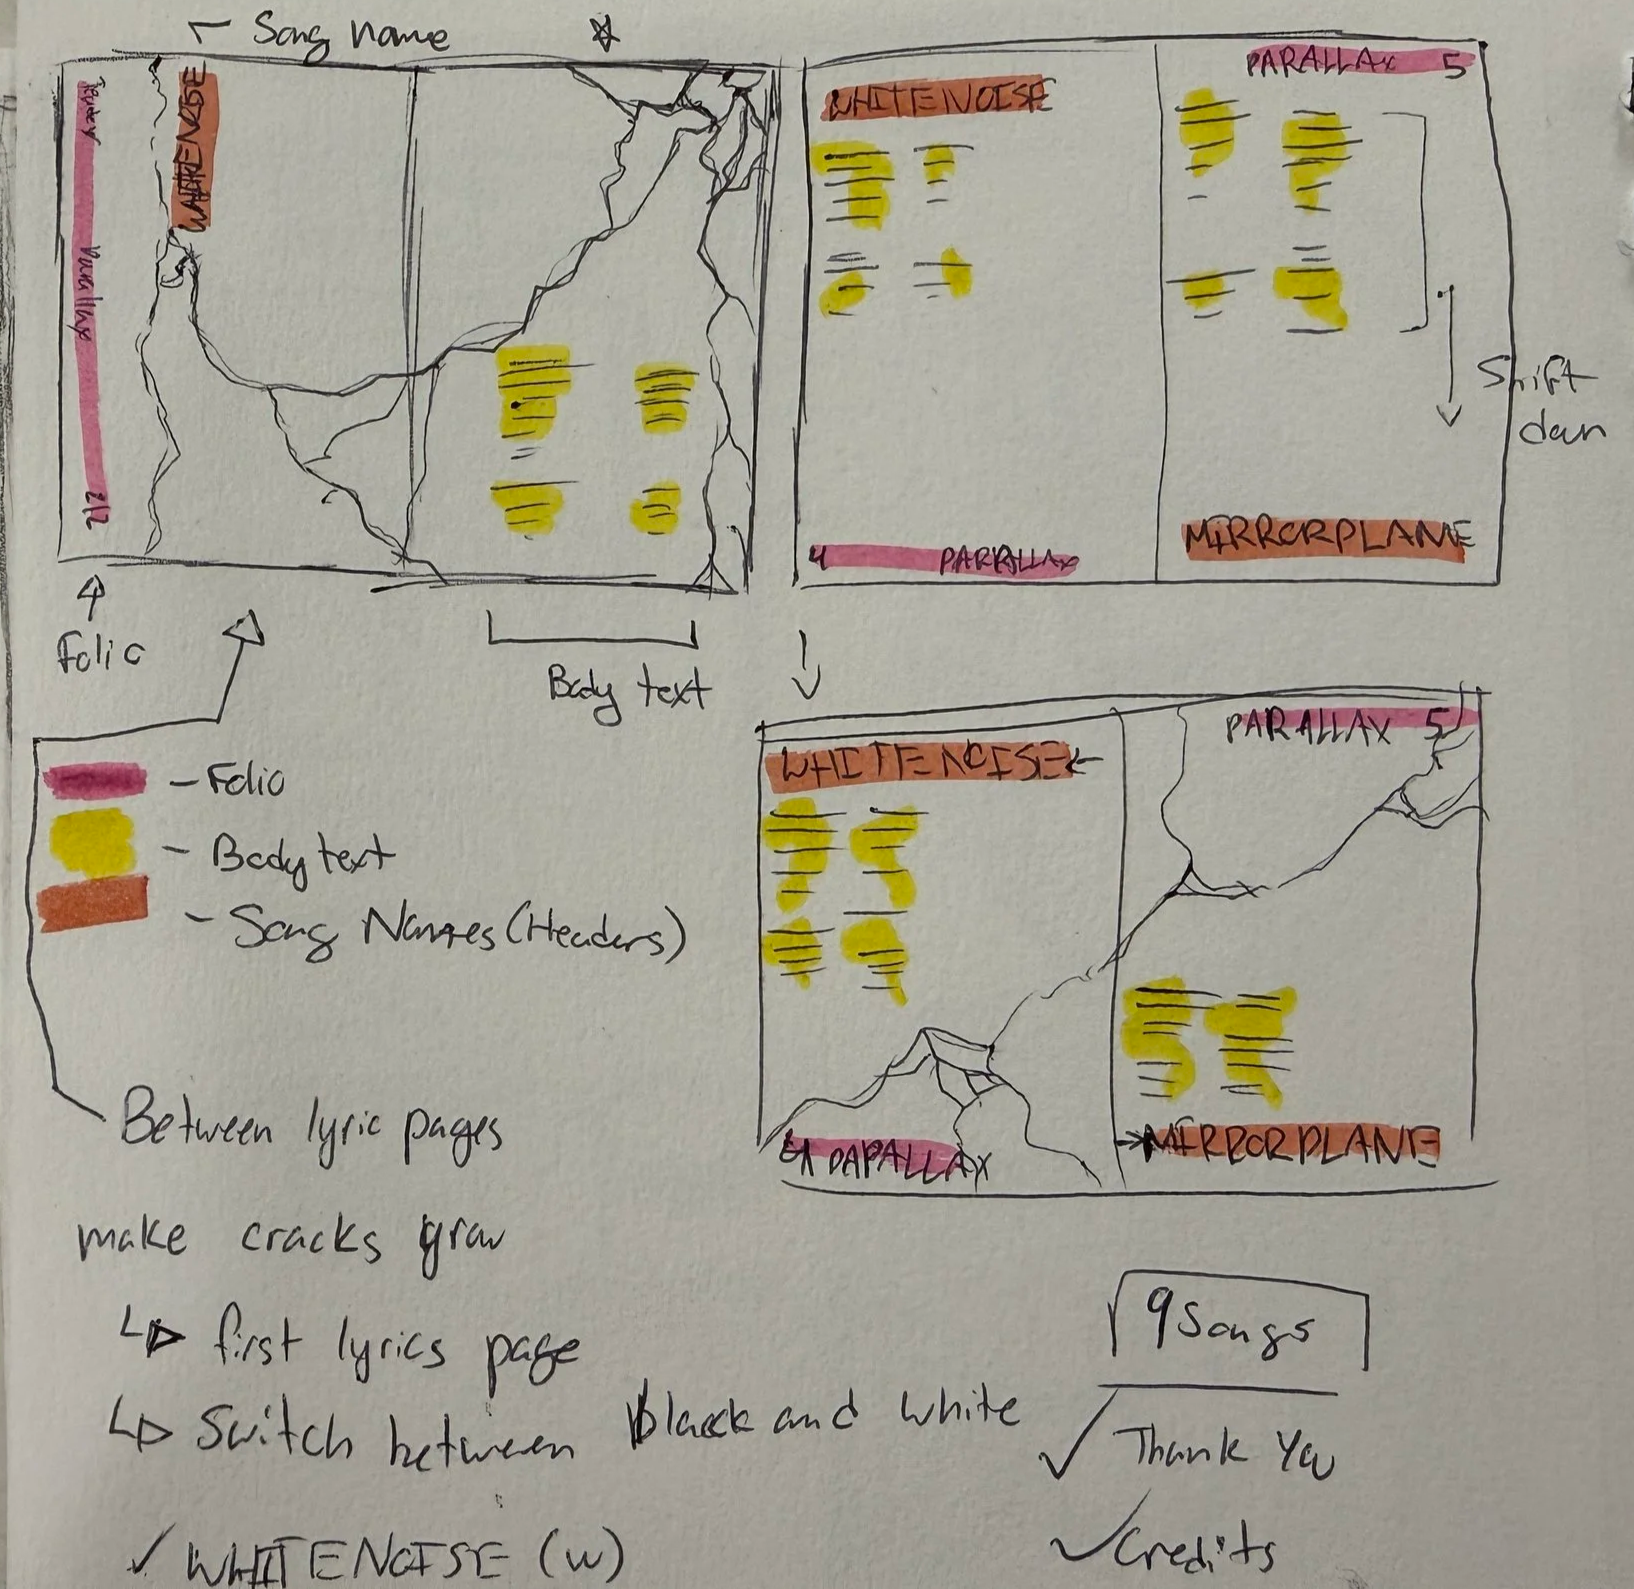 Song name
WHITENOISE
Parallax
2/2
Folio
Body text
WHITENOISE
PARALLAX 5
Shift down
4 PARALLAX
MIRRORPLANE
- Folio
- Body text
- Song Names (Headers)
PARALLAX 5
WHITENOISE
PARALLAX
MIRRORPLANE
Between lyric pages
make cracks grow
first lyrics page
Switch between black and white
WHITENOISE (W)
9 Songs
Thank You
Credits